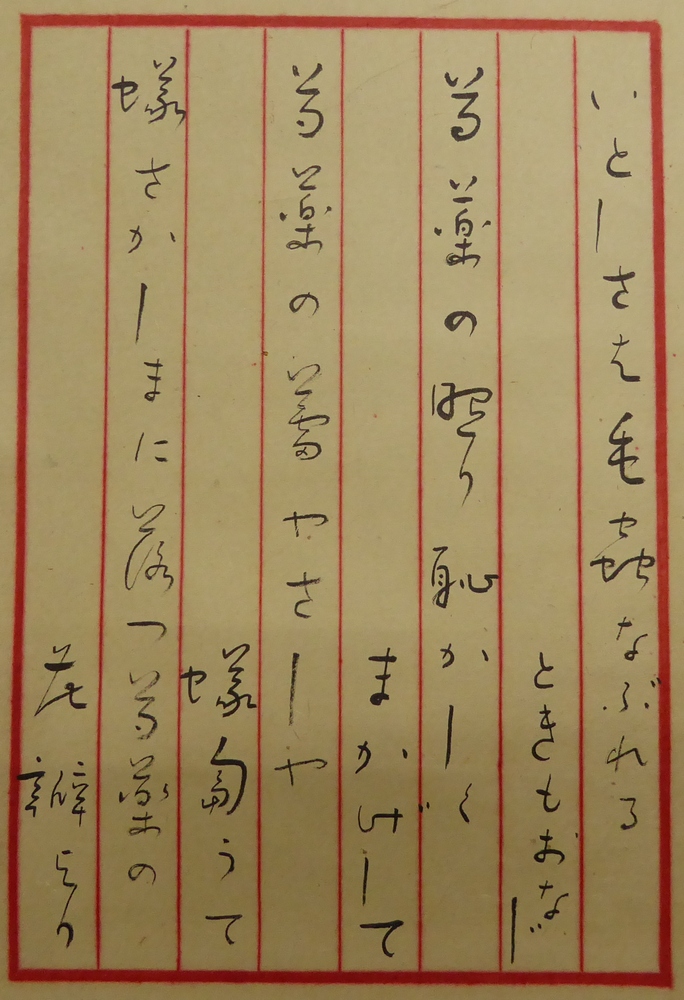 いとしさは毛蟲なぶれる
ときもおなじ
芍薬の照り恥かしく
まかげして
芍薬の蕾やさしや
蟻匐うて
蟻さかしまに落つ芍薬の
花瓣より